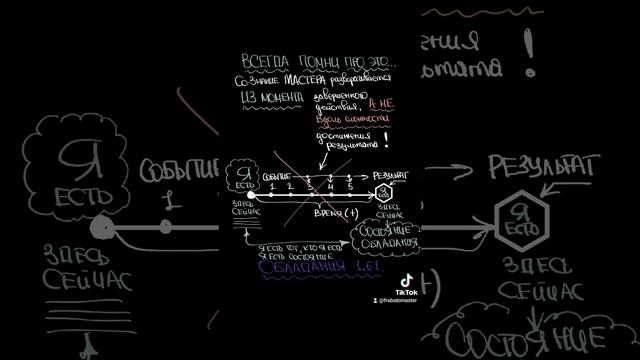 ВСЕГДА ПОМНИ ПРО ЭТО...
СОЗНАНИЕ МАСТЕРА разворачивается
ИЗ МОМЕНТА завершенного
действия, А НЕ
Вдоль сложности
достижения
результата !
Я ЕСТЬ
СОБЫТИЕ
РЕЗУЛЬТАТ
1 2 3 4 5
Я ЕСТЬ
ЗДЕСЬ
СЕЙЧАС
ВРЕМЯ (+)
ЗДЕСЬ
СЕЙЧАС
СОСТОЯНИЕ
ОБЛАДАНИЯ
Я ЕСТЬ ТОТ, КТО Я ЕСТЬ
Я ЕСТЬ СОСТОЯНИЕ
ОБЛАДАНИЯ 1.61.
TikTok
@frabatomaster
Я
ЕСТЬ
СОБЫТИЕ
1
ЗДЕСЬ
СЕЙЧАС
ения
ьтата !
РЕЗУЛЬТАТ
Я
ЕСТЬ
ЗДЕСЬ
СЕЙЧАС
+)
СОСТОЯНИЕ